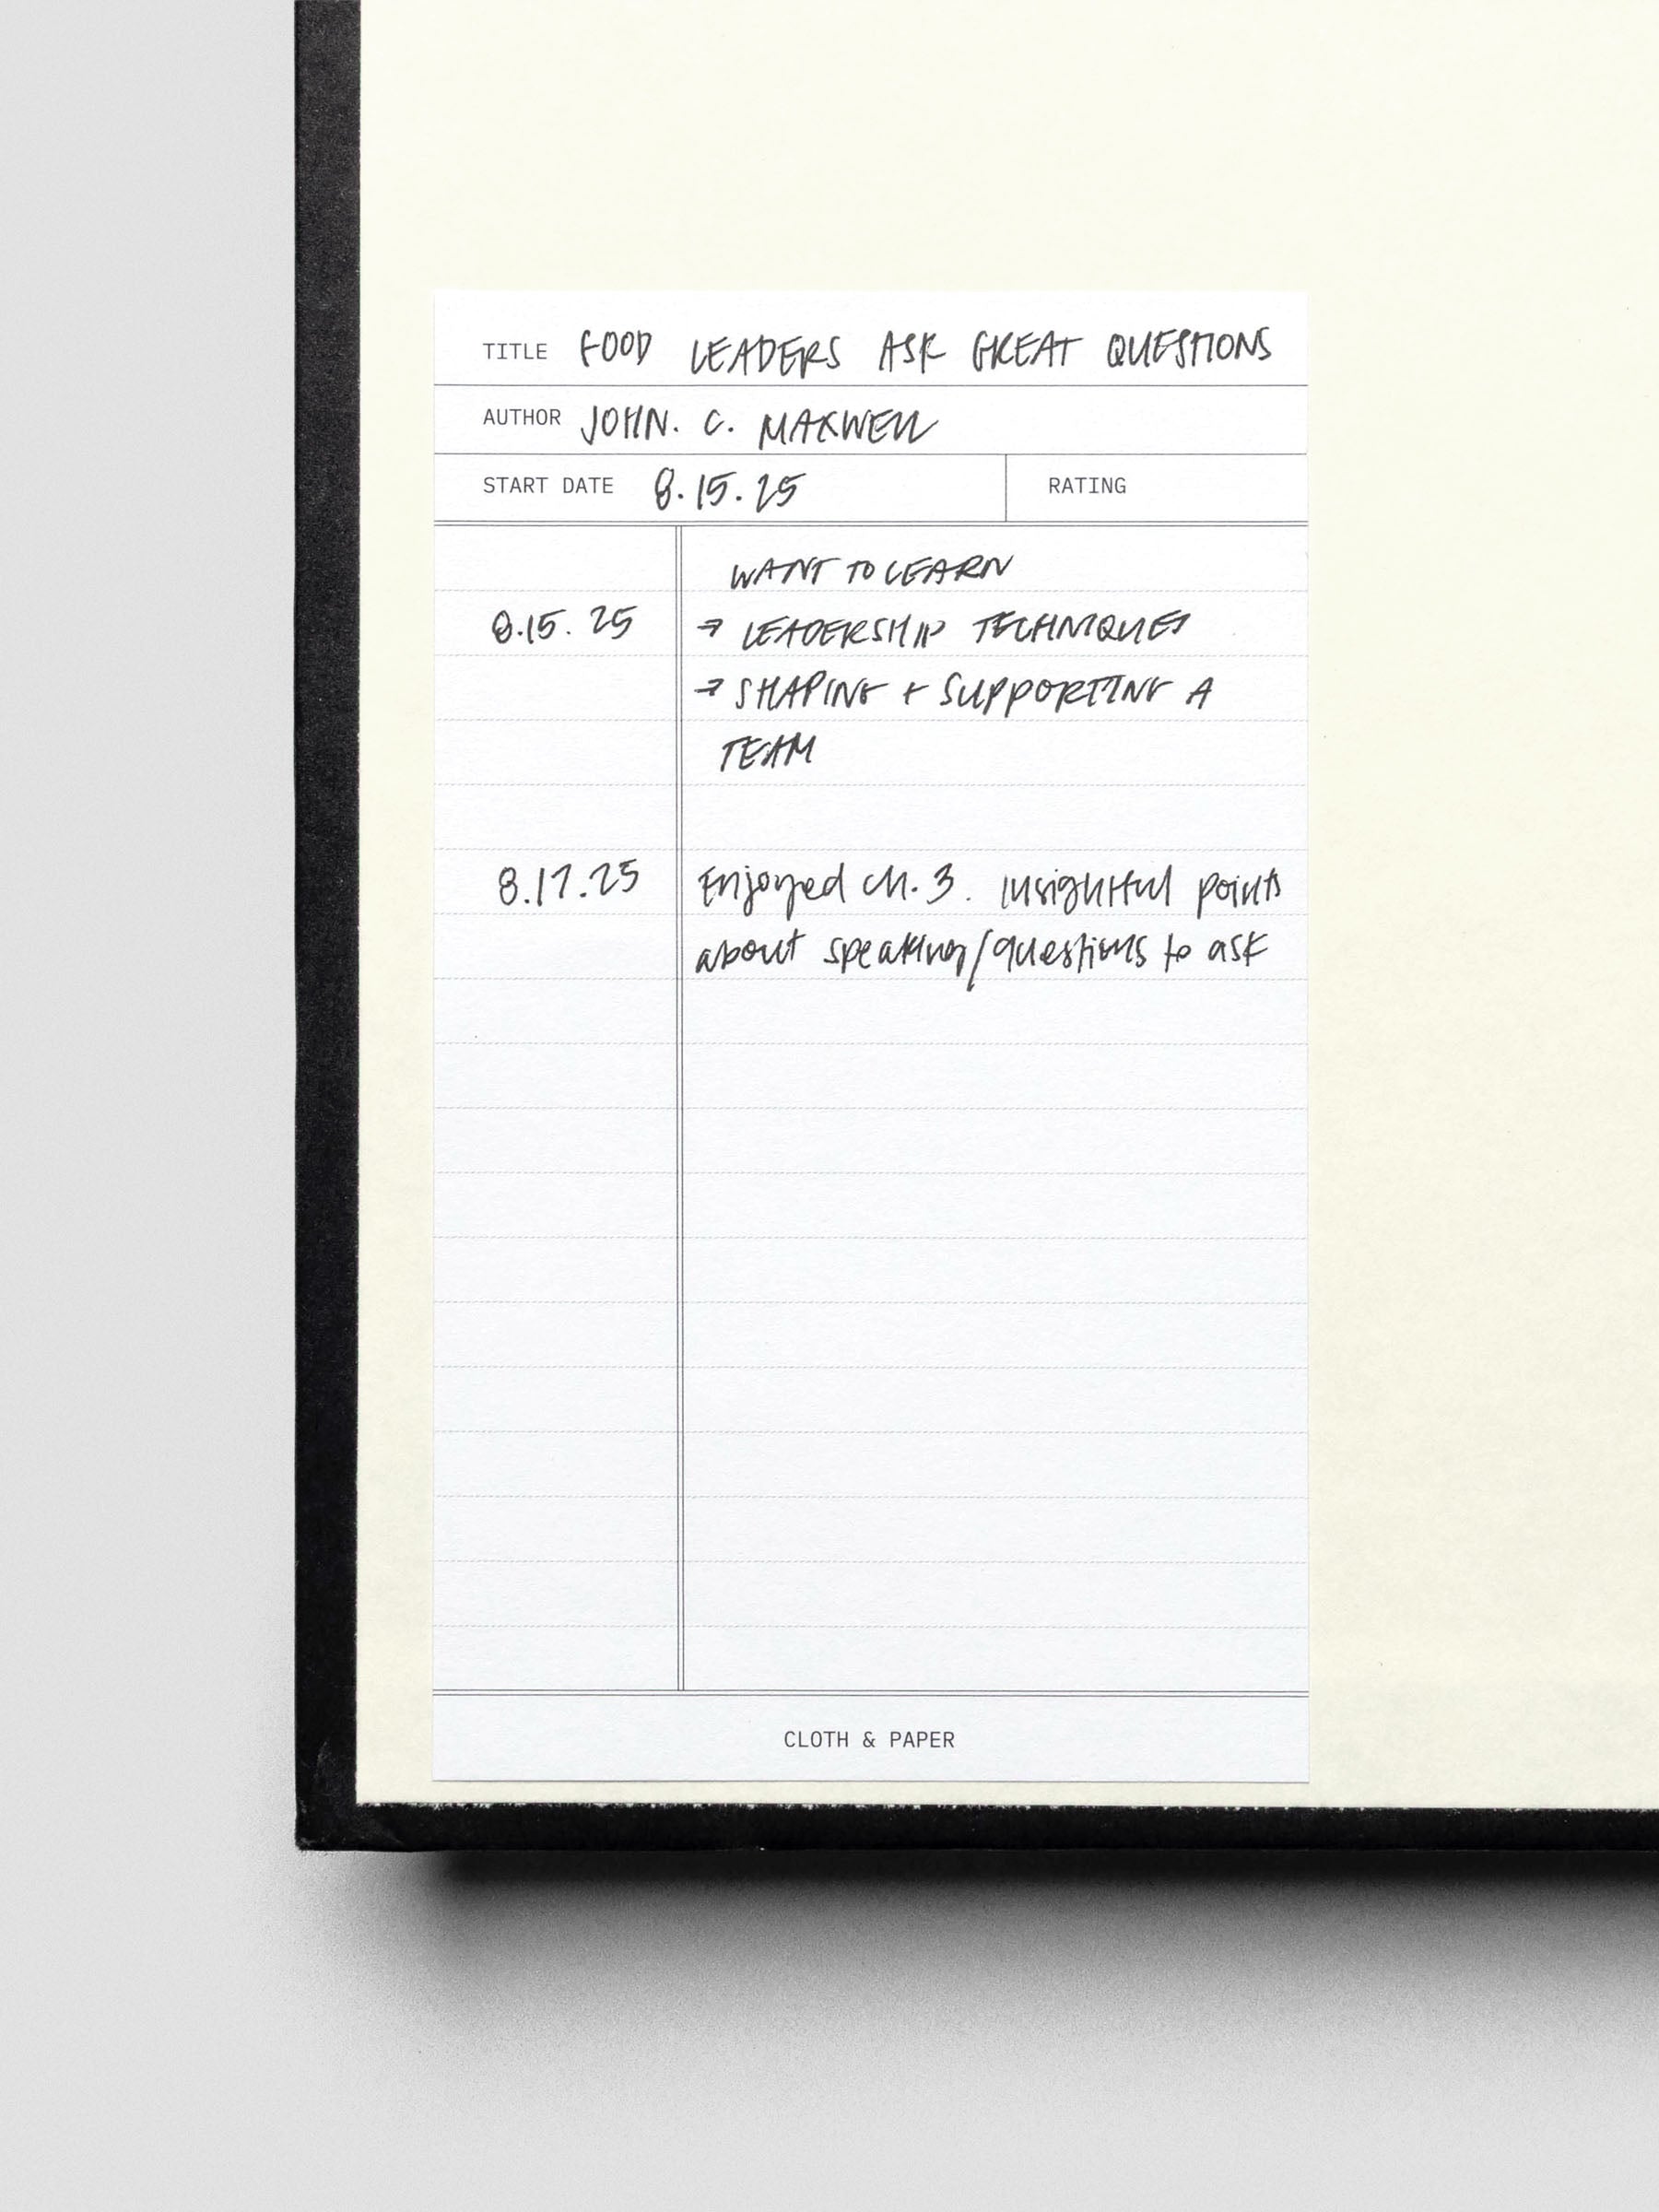 TITLE GOOD LEADERS ASK GREAT QUESTIONS
AUTHOR JOHN. C. MAXWELL
START DATE 8.15.25 RATING
WANT TO LEARN
8.15.25 → LEADERSHIP TECHNIQUES
→ SHAPING + SUPPORTING A
TEAM
8.17.25 Enjoyed ch. 3. insightful points
about speaking/questions to ask
CLOTH & PAPER